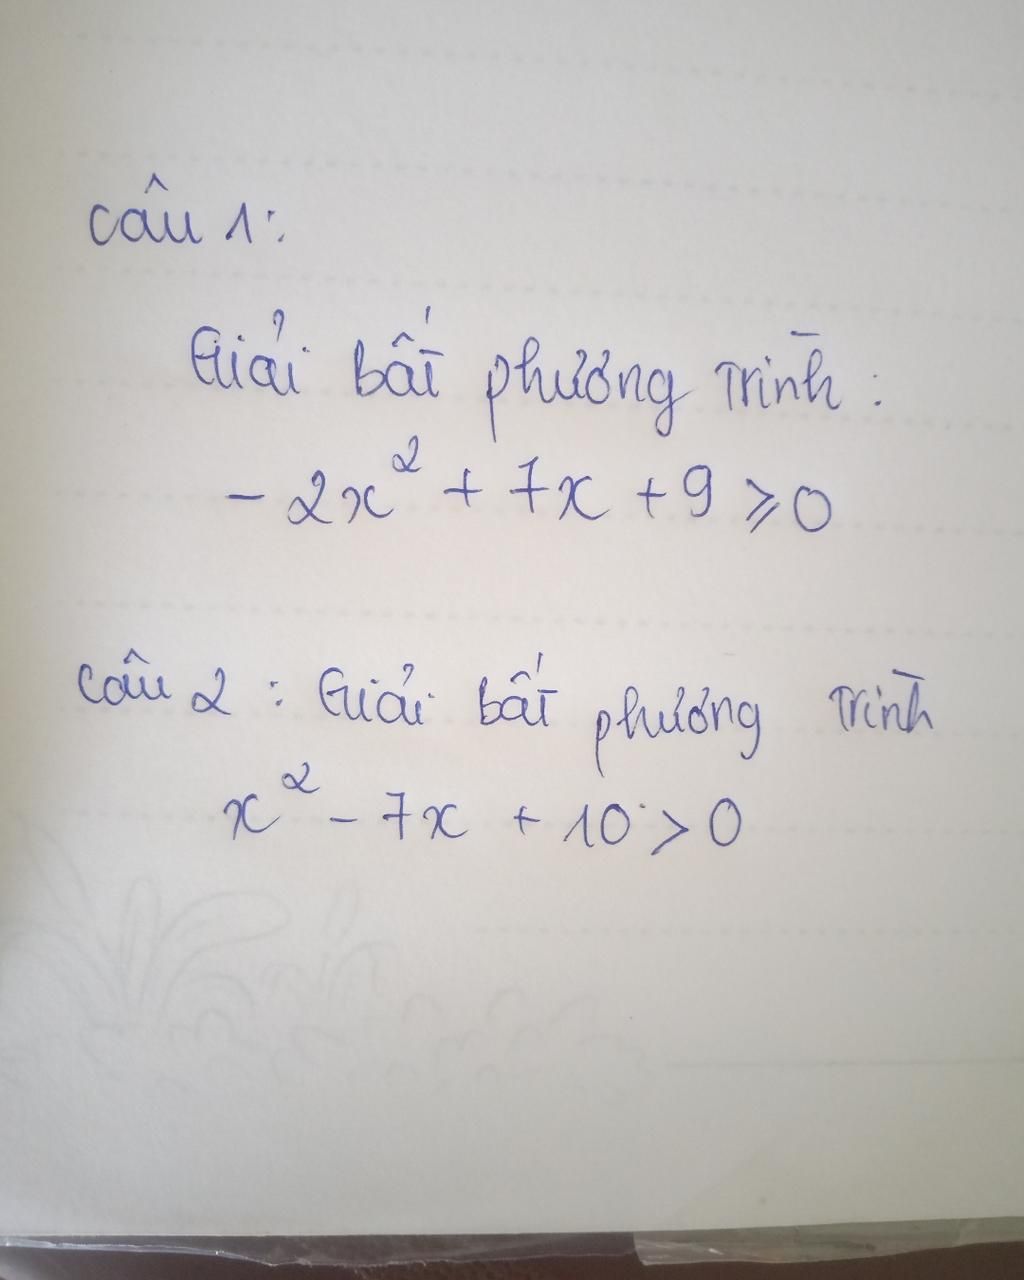 Câu 1:
Giải bất phương trình:
- 2x² + 7x + 9 ⩾ 0
Câu 2 : Giải bất phương trình
x² - 7x + 10 > 0